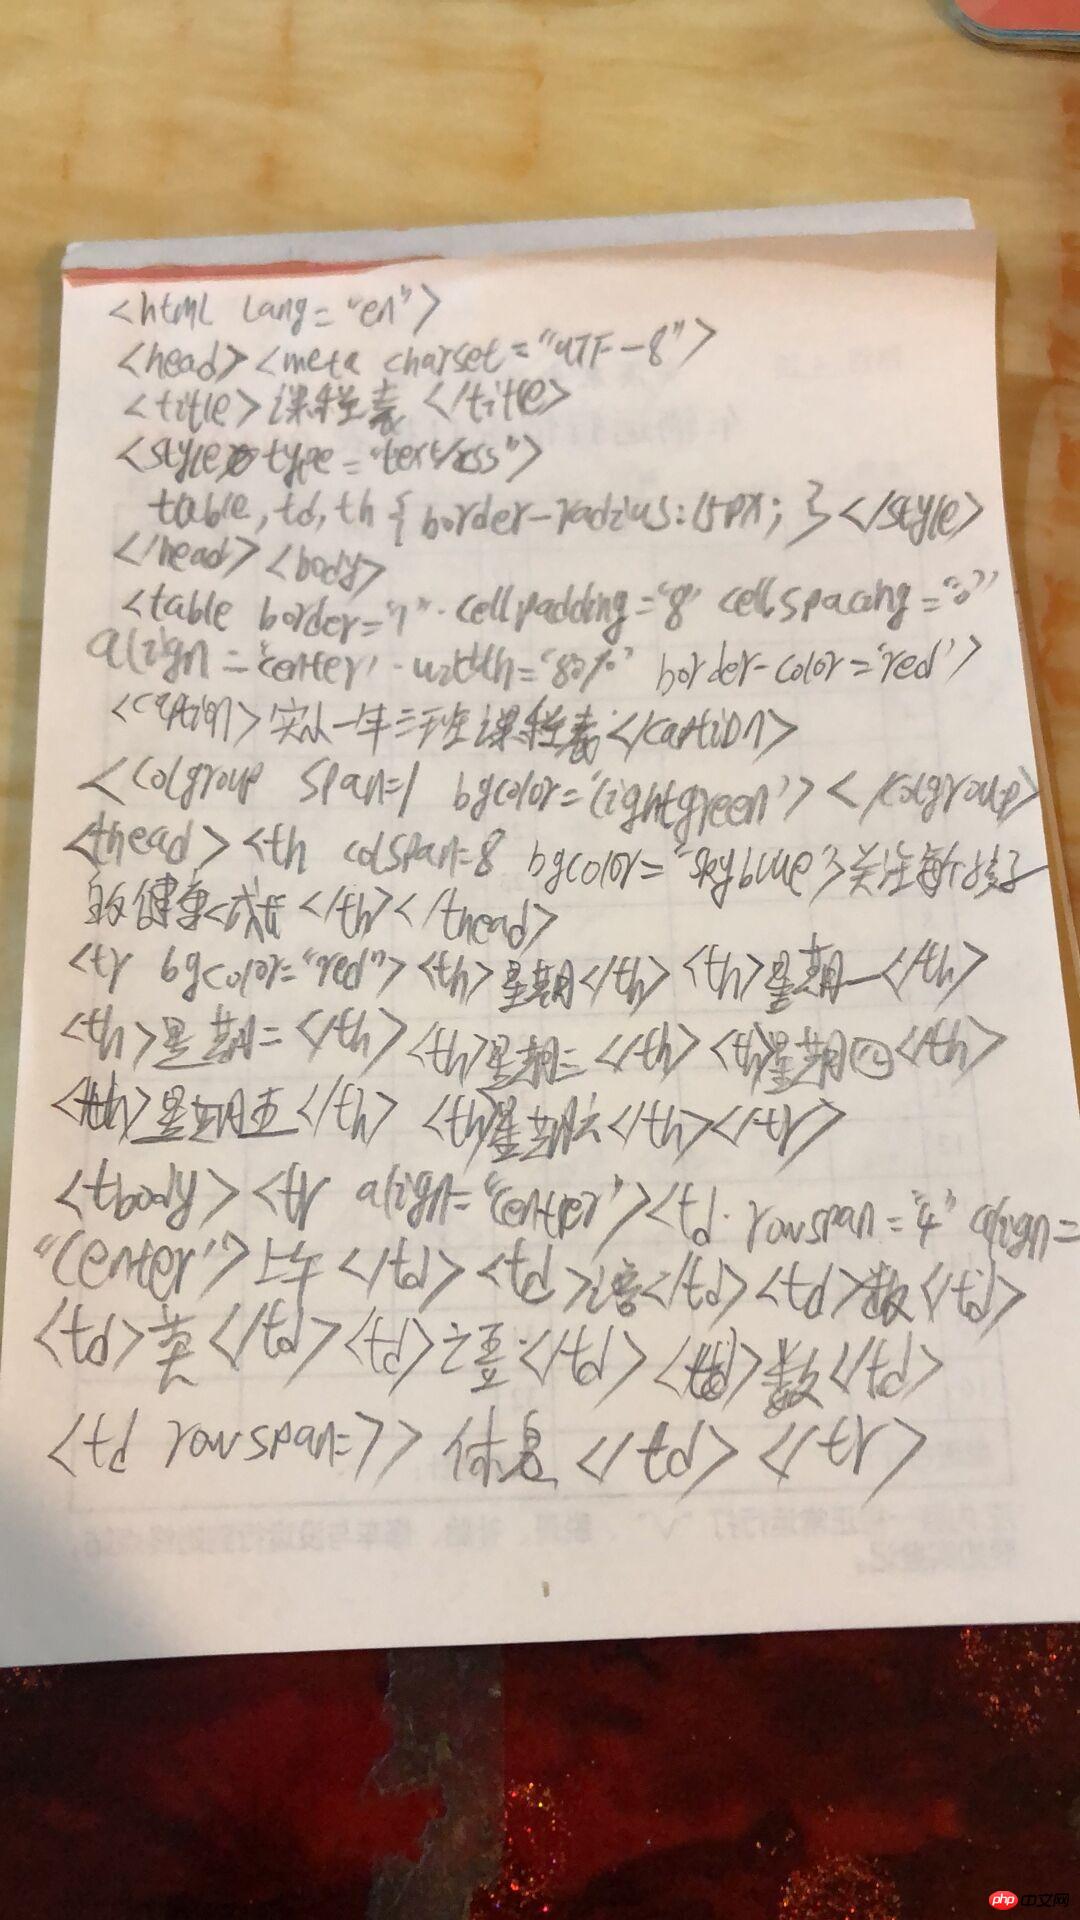 <html lang="en">
<head><meta charset="UTF-8">
<title>课程表</title>
<style type="text/css">
table, td, th { border-radius:15px; } </style>
</head><body>
<table border="1" cellpadding="8" cellspacing="0"
align="center" width="80%" border-color="red">
<caption>实小一年三班课程表</caption>
<colgroup span=1 bgcolor="lightgreen"></colgroup>
<thead><th colspan=8 bgcolor="skyblue">关注每个孩子
的健康成长</th></thead>
<tr bgcolor="red"><th>星期</th><th>星期一</th>
<th>星期二</th><th>星期三</th><th>星期四</th>
<th>星期五</th><th>星期六</th></tr>
<tbody><tr align="center"><td rowspan="4" align=
"center">上午</td><td>语</td><td>数</td>
<td>英</td><td></td><td>数</td>
<td rowspan=7>休息</td></tr>
php 中文网